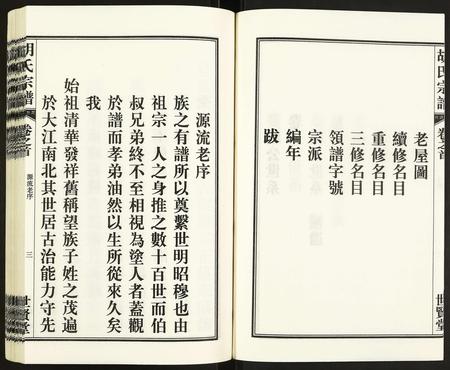 胡氏宗譜
卷之首
世賢堂
老屋圖
續修名目
重修名目
三修名目
領譜字號
宗派
編年
跋
源流老序
族之有譜所以奠繫世明昭穆也由
祖宗一人之身推之數十百世而伯
叔兄弟終不至相視為塗人者蓋觀
於譜而孝弟油然以生所從來久矣
我
始祖清華發祥舊稱望族子姓之茂遍
於大江南北其世居古治能力守先
胡氏宗譜
卷之首
源流老序
三
世賢堂